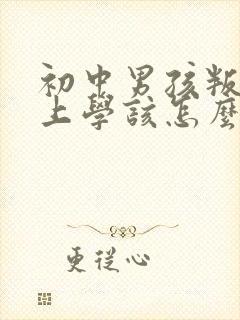 初中男孩叛
上學該怎麼
更從心